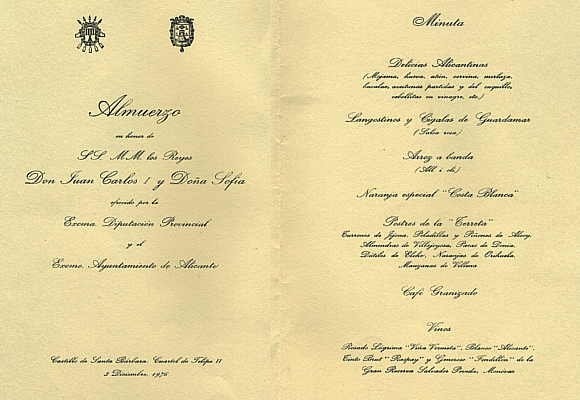 Almuerzo
en honor de
S.S. M.M. los Reyes
Don Juan Carlos I y Doña Sofía
ofrecido por la
Excma. Diputación Provincial
y el
Excmo. Ayuntamiento de Alicante
Castillo de Santa Bárbara. Cuartel de Felipe II
3 Diciembre, 1976
Minuta
Delicias Alicantinas
(Mojama, hueva, atún, corvina, merluza,
bacalao, aceitunas partidas y del cuquillo,
cebollitas en vinagre, etc.)
Langostinos y Cigalas de Guardamar
(Salsa rosa)
Arroz a banda
(All i oli)
Naranja especial "Costa Blanca"
Postres de la "Terreta"
Turrones de Jijona, Peladillas y Piñones de Alcoy,
Almendras de Villajoyosa, Pasas de Denia,
Dátiles de Elche, Naranjas de Orihuela,
Manzanas de Villena
Café Granizado
Vinos
Rosado Lágrima "Viña Vermeta", Blanco "Alicante",
Tinto Brut "Raspay" y Generoso "Fondillón" de la
Gran Reserva Salvador Poveda, Monóvar